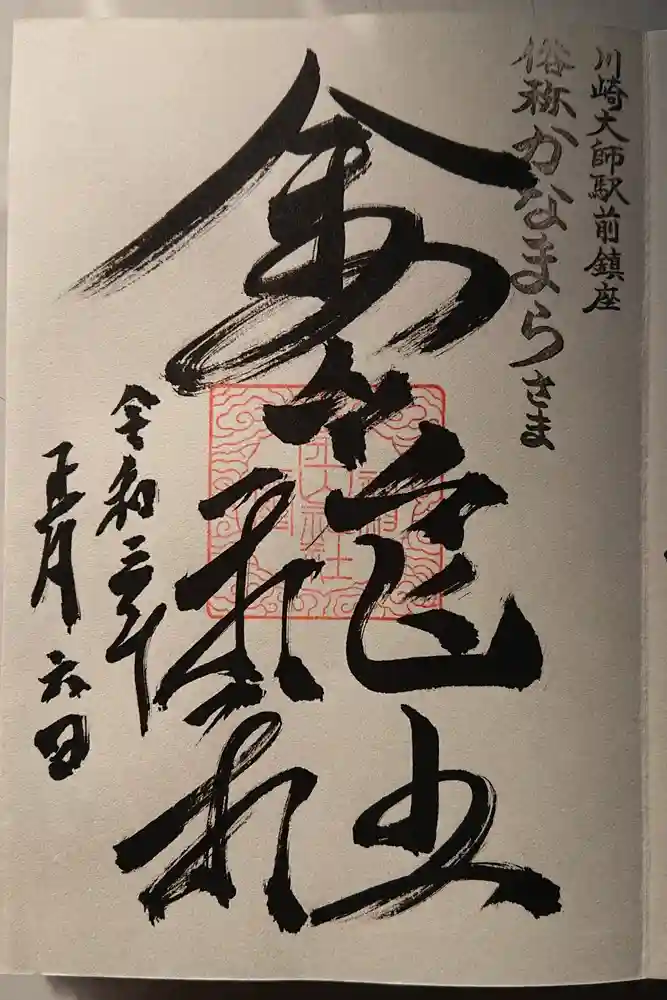 川崎大師駅前鎮座
俗称かなまらさま
金山神社
令和三年
正月六日